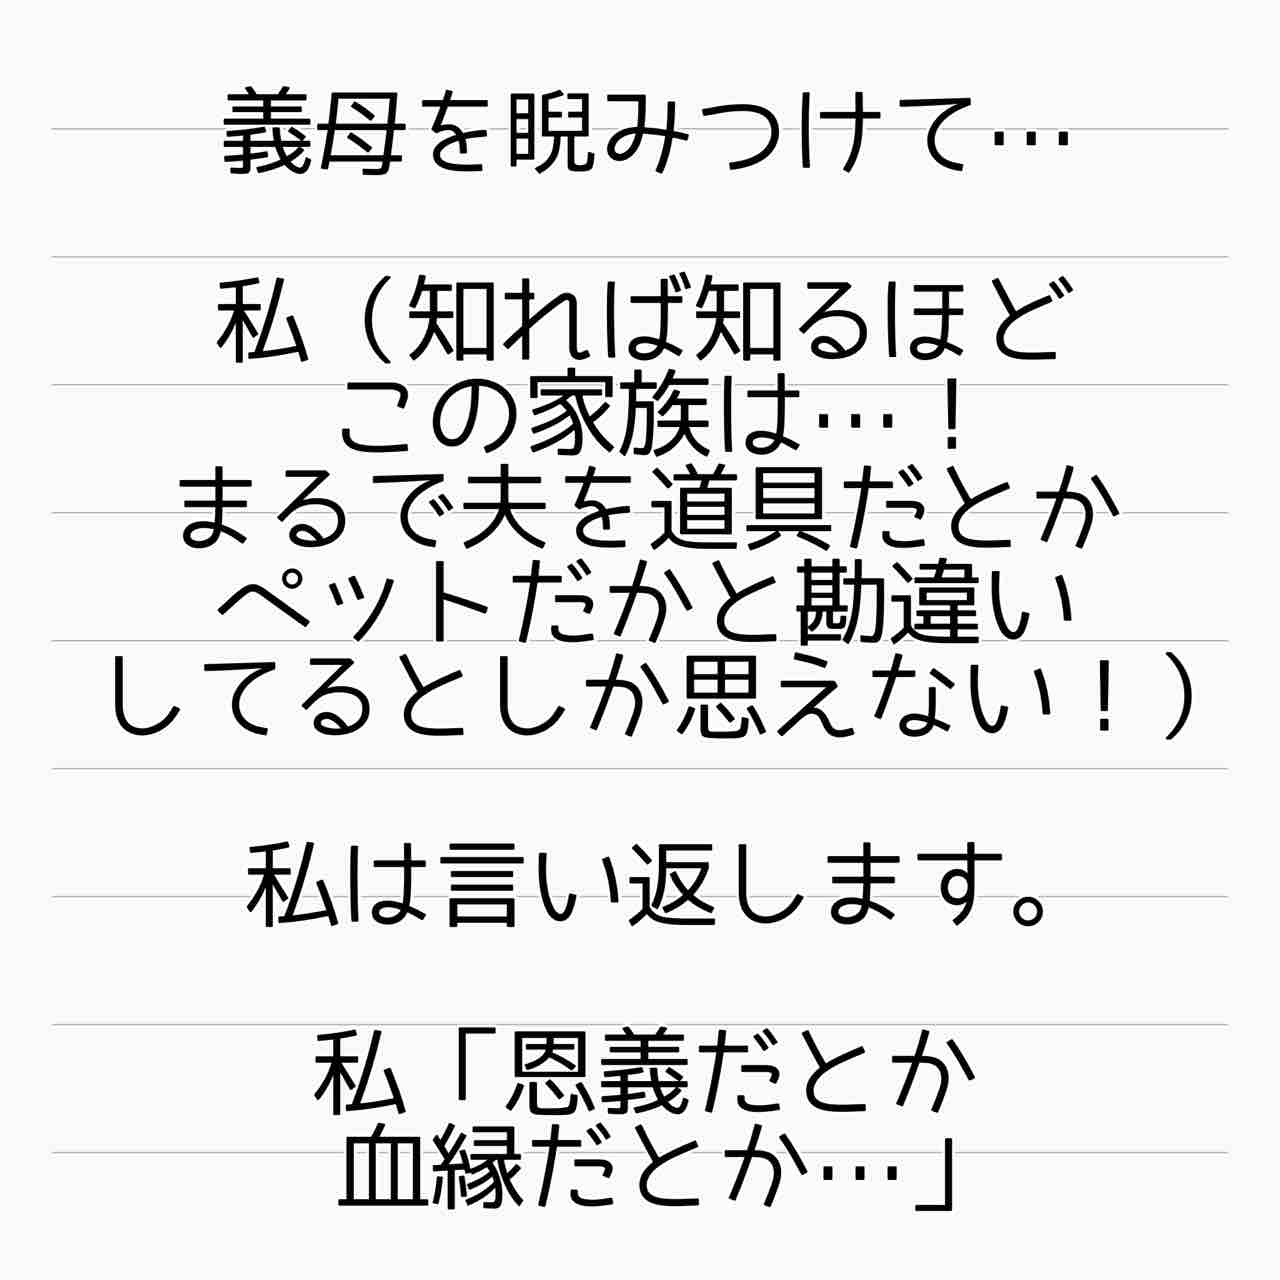 義母を睨みつけて…
私（知れば知るほど
この家族は…！
まるで夫を道具だとか
ペットだかと勘違い
してるとしか思えない！）
私は言い返します。
私「恩義だとか
血縁だとか…」